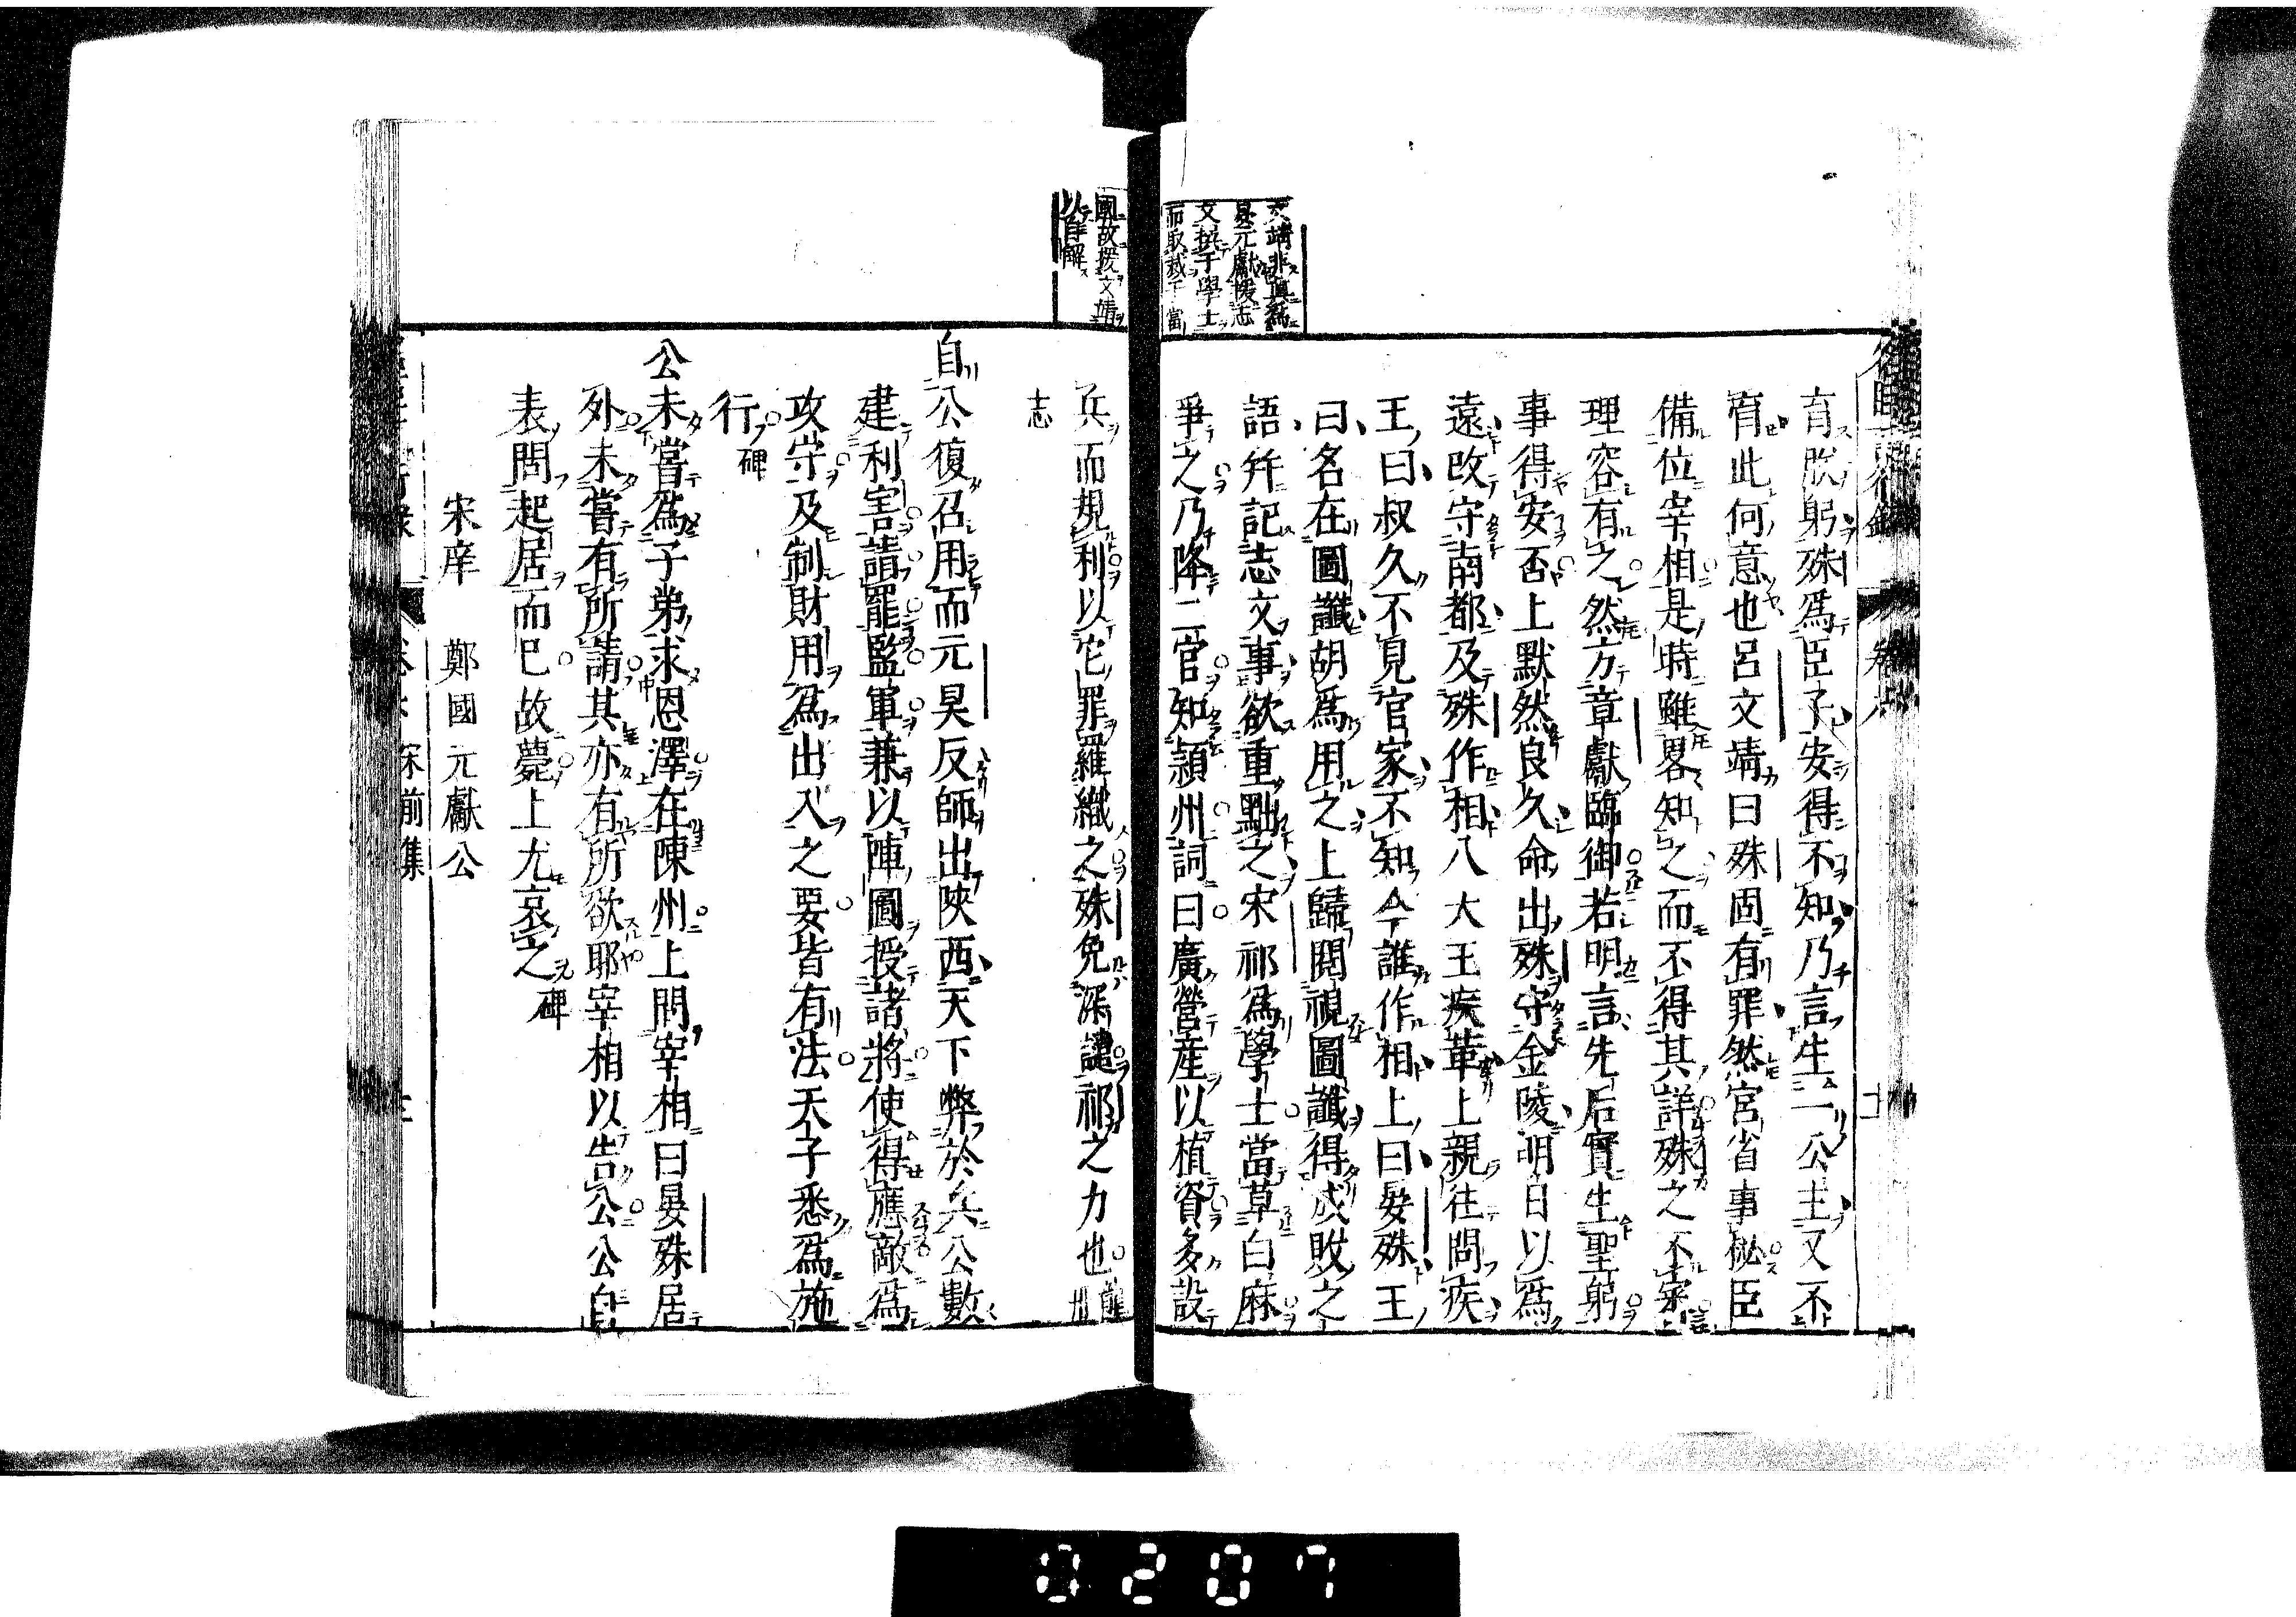 育朕躬殊為臣子安得不知乃言生一公主又不
育此何意也呂文靖曰殊固有罪然宮省事秘臣
備位宰相是時雖畧知之而不得其詳殊之不審
理容有之然方章獻臨御若明言先后實生聖躬
事得安否上默然良久命出殊守金陵明日以為
遠改守南都及殊作相八大王疾革上親往問疾
王曰叔久不見官家不知今誰作相上曰晏殊王
曰名在圖讖胡為用之上歸閱視圖讖得成敗之
語并記志文事欲重黜之宋祁為學士當草白麻
爭之乃降二官知潁州詞曰廣營產以植資多設
文靖非真爲
晏元獻援志
文撰于學士
而取裁于當
國故援文靖
以自解
兵而規利以它罪羅織之殊免深譴祁之力也
志
自公復召用而元昊反師出陝西天下弊於兵公數
建利害請罷監軍兼以陣圖授諸將使得應敵為
攻守及制財用為出入之要皆有法天子悉為施
行碑
公未嘗為子弟求恩澤在陳州上問宰相曰晏殊居
外未嘗有所請其亦有所欲耶宰相以告公公自
表問起居而已故薨上尤哀之碑
宋庠 鄭國元獻公
宋前集
0207